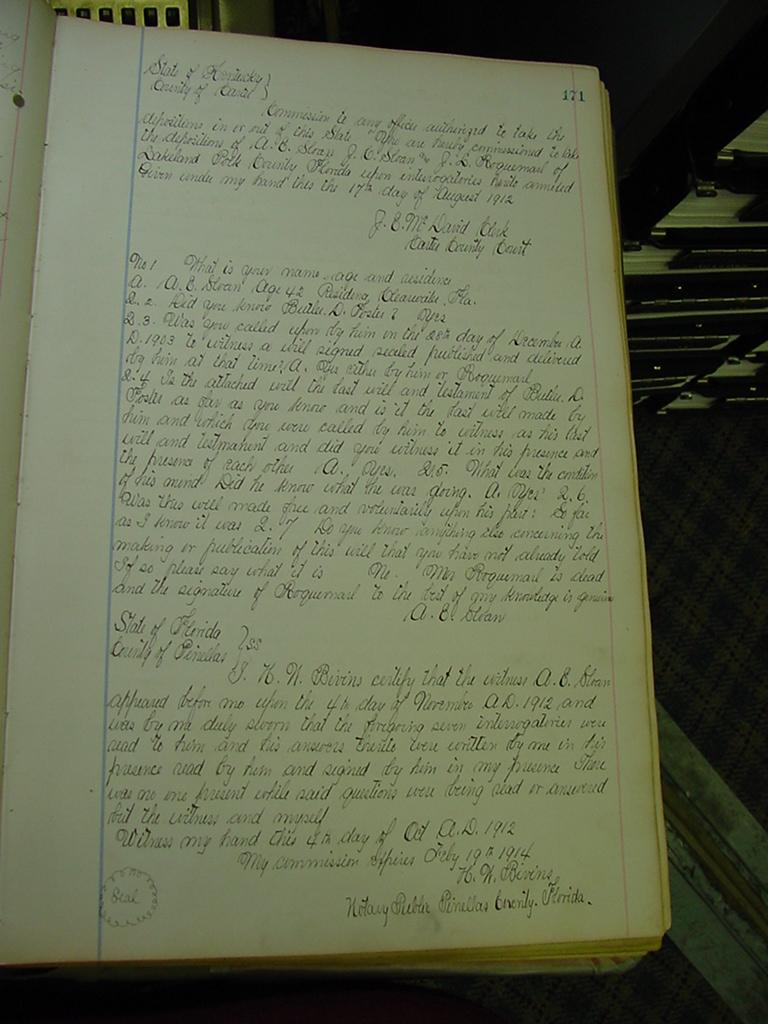 171
State of Kentucky }
County of Carter }
Commission to any officer authorized to take the
depositions in or out of this State You are hereby commissioned to take
the depositions of A. E. Sloan J. C. Sloan and J. L. Roquemarl of
Lakeland Polk County Florida upon interrogatories hereto annexed
Given under my hand this the 17th day of August 1912
J. E. McDavid Clerk
Carter County Court
No 1 What is your name age and residence
A. A. E. Sloan Age 42 Residence, Clearwater, Fla.
2. 2. Did you know Butler. D. Foster? Yes
2. 3. Was you called upon by him in the 28th day of December A.
D. 1903 to witness a will signed sealed published and delivered
by him at that time? A. Yes either by him or Roquemarl
2. 4 Is the attached will the last will and testament of Butler. D.
Foster as far as you know and is it the last will made by
him and which you were called by him to witness as his last
will and testmanent and did you witness it in his presence and
the presence of each other A. Yes. 2. 5. What was the condition
of his mind Did he know what he was doing. A. Yes 2. 6.
Was this will made free and voluntarily upon his part: So far
as I know it was 2. 7 Do you know anything else concerning the
making or publication of this will that you have not already told
If so please say what it is No. Mr Roquemarl is dead
and the signature of Roquemarl to the best of my knowledge is genuine
A. E. Sloan
State of Florida }
County of Pinellas } SS
I. H. W. Bivins certify that the witness A. E. Sloan
appeared before me upon the 4th day of November A.D. 1912 and
was by me duly sworn that the foregoing seven interrogatories were
read to him and his answers thereto were written by me in his
presence read by him and signed by him in my presence There
was no one present while said questions were being read or answered
but the witness and myself
Witness my hand this 4th day of Oct A.D. 1912
My commission expires Feby 19th 1914
H. W. Bivins
Seal
Notary Public Pinellas County. Florida.